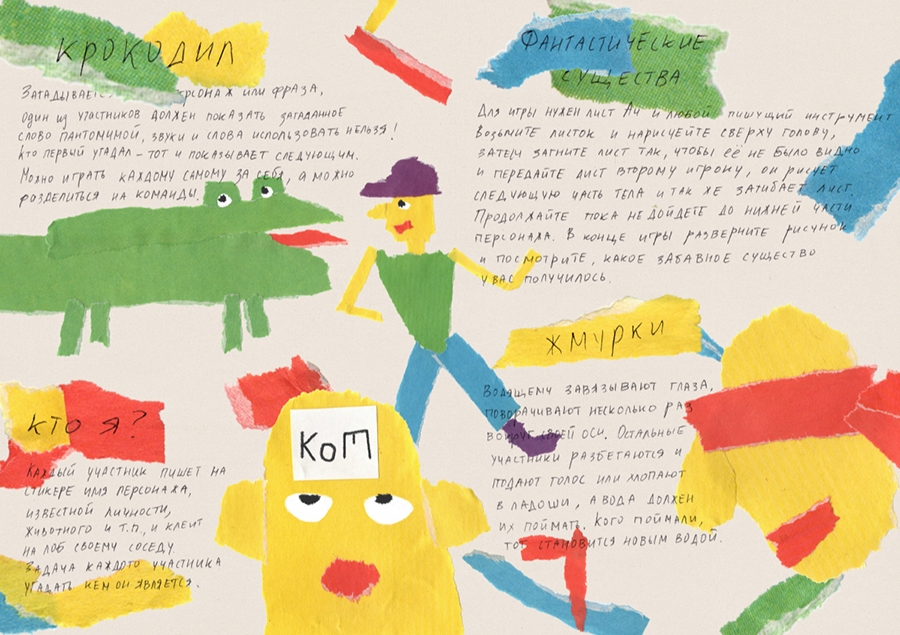 КРОКОДИЛ
ЗАГАДЫВАЕТСЯ ПЕРСОНАЖ ИЛИ ФРАЗА,
ОДИН ИЗ УЧАСТНИКОВ ДОЛЖЕН ПОКАЗАТЬ ЗАГАДАННОЕ
СЛОВО ПАНТОМИМОЙ, ЗВУКИ И СЛОВА ИСПОЛЬЗОВАТЬ НЕЛЬЗЯ!
КТО ПЕРВЫЙ УГАДАЛ – ТОТ И ПОКАЗЫВАЕТ СЛЕДУЮЩИМ.
МОЖНО ИГРАТЬ КАЖДОМУ САМОМУ ЗА СЕБЯ, А МОЖНО
РАЗДЕЛИТЬСЯ НА КОМАНДЫ.
ФАНТАСТИЧЕСКИЕ
СУЩЕСТВА
ДЛЯ ИГРЫ НУЖЕН ЛИСТ А4 И ЛЮБОЙ ПИШУЩИЙ ИНСТРУМЕНТ
ВОЗЬМИТЕ ЛИСТОК И НАРИСУЙТЕ СВЕРХУ ГОЛОВУ,
ЗАТЕМ ЗАГНИТЕ ЛИСТ ТАК, ЧТОБЫ ЕЁ НЕ БЫЛО ВИДНО
И ПЕРЕДАЙТЕ ЛИСТ ВТОРОМУ ИГРОКУ, ОН РИСУЕТ
СЛЕДУЮЩУЮ ЧАСТЬ ТЕЛА И ТАК ЖЕ ЗАГИБАЕТ ЛИСТ.
ПРОДОЛЖАЙТЕ ПОКА НЕ ДОЙДЕТЕ ДО НИЖНЕЙ ЧАСТИ
ПЕРСОНАЖА. В КОНЦЕ ИГРЫ РАЗВЕРНИТЕ РИСУНОК
И ПОСМОТРИТЕ, КАКОЕ ЗАБАВНОЕ СУЩЕСТВО
У ВАС ПОЛУЧИЛОСЬ.
КТО Я?
КАЖДЫЙ УЧАСТНИК ПИШЕТ НА
СТИКЕРЕ ИМЯ ПЕРСОНАЖА,
ИЗВЕСТНОЙ ЛИЧНОСТИ,
ЖИВОТНОГО И Т.П., И КЛЕИТ
НА ЛОБ СВОЕМУ СОСЕДУ.
ЗАДАЧА КАЖДОГО УЧАСТНИКА
УГАДАТЬ КЕМ ОН ЯВЛЯЕТСЯ.
КОТ
ЖМУРКИ
ВОДЯЩЕМУ ЗАВЯЗЫВАЮТ ГЛАЗА,
ПОВОРАЧИВАЮТ НЕСКОЛЬКО РАЗ
ВОКРУГ СВОЕЙ ОСИ. ОСТАЛЬНЫЕ
УЧАСТНИКИ РАЗБЕГАЮТСЯ И
ПОДАЮТ ГОЛОС ИЛИ ХЛОПАЮТ
В ЛАДОШИ, А ВОДА ДОЛЖЕН
ИХ ПОЙМАТЬ. КОГО ПОЙМАЛИ,
ТОТ СТАНОВИТСЯ НОВЫМ ВОДОЙ.